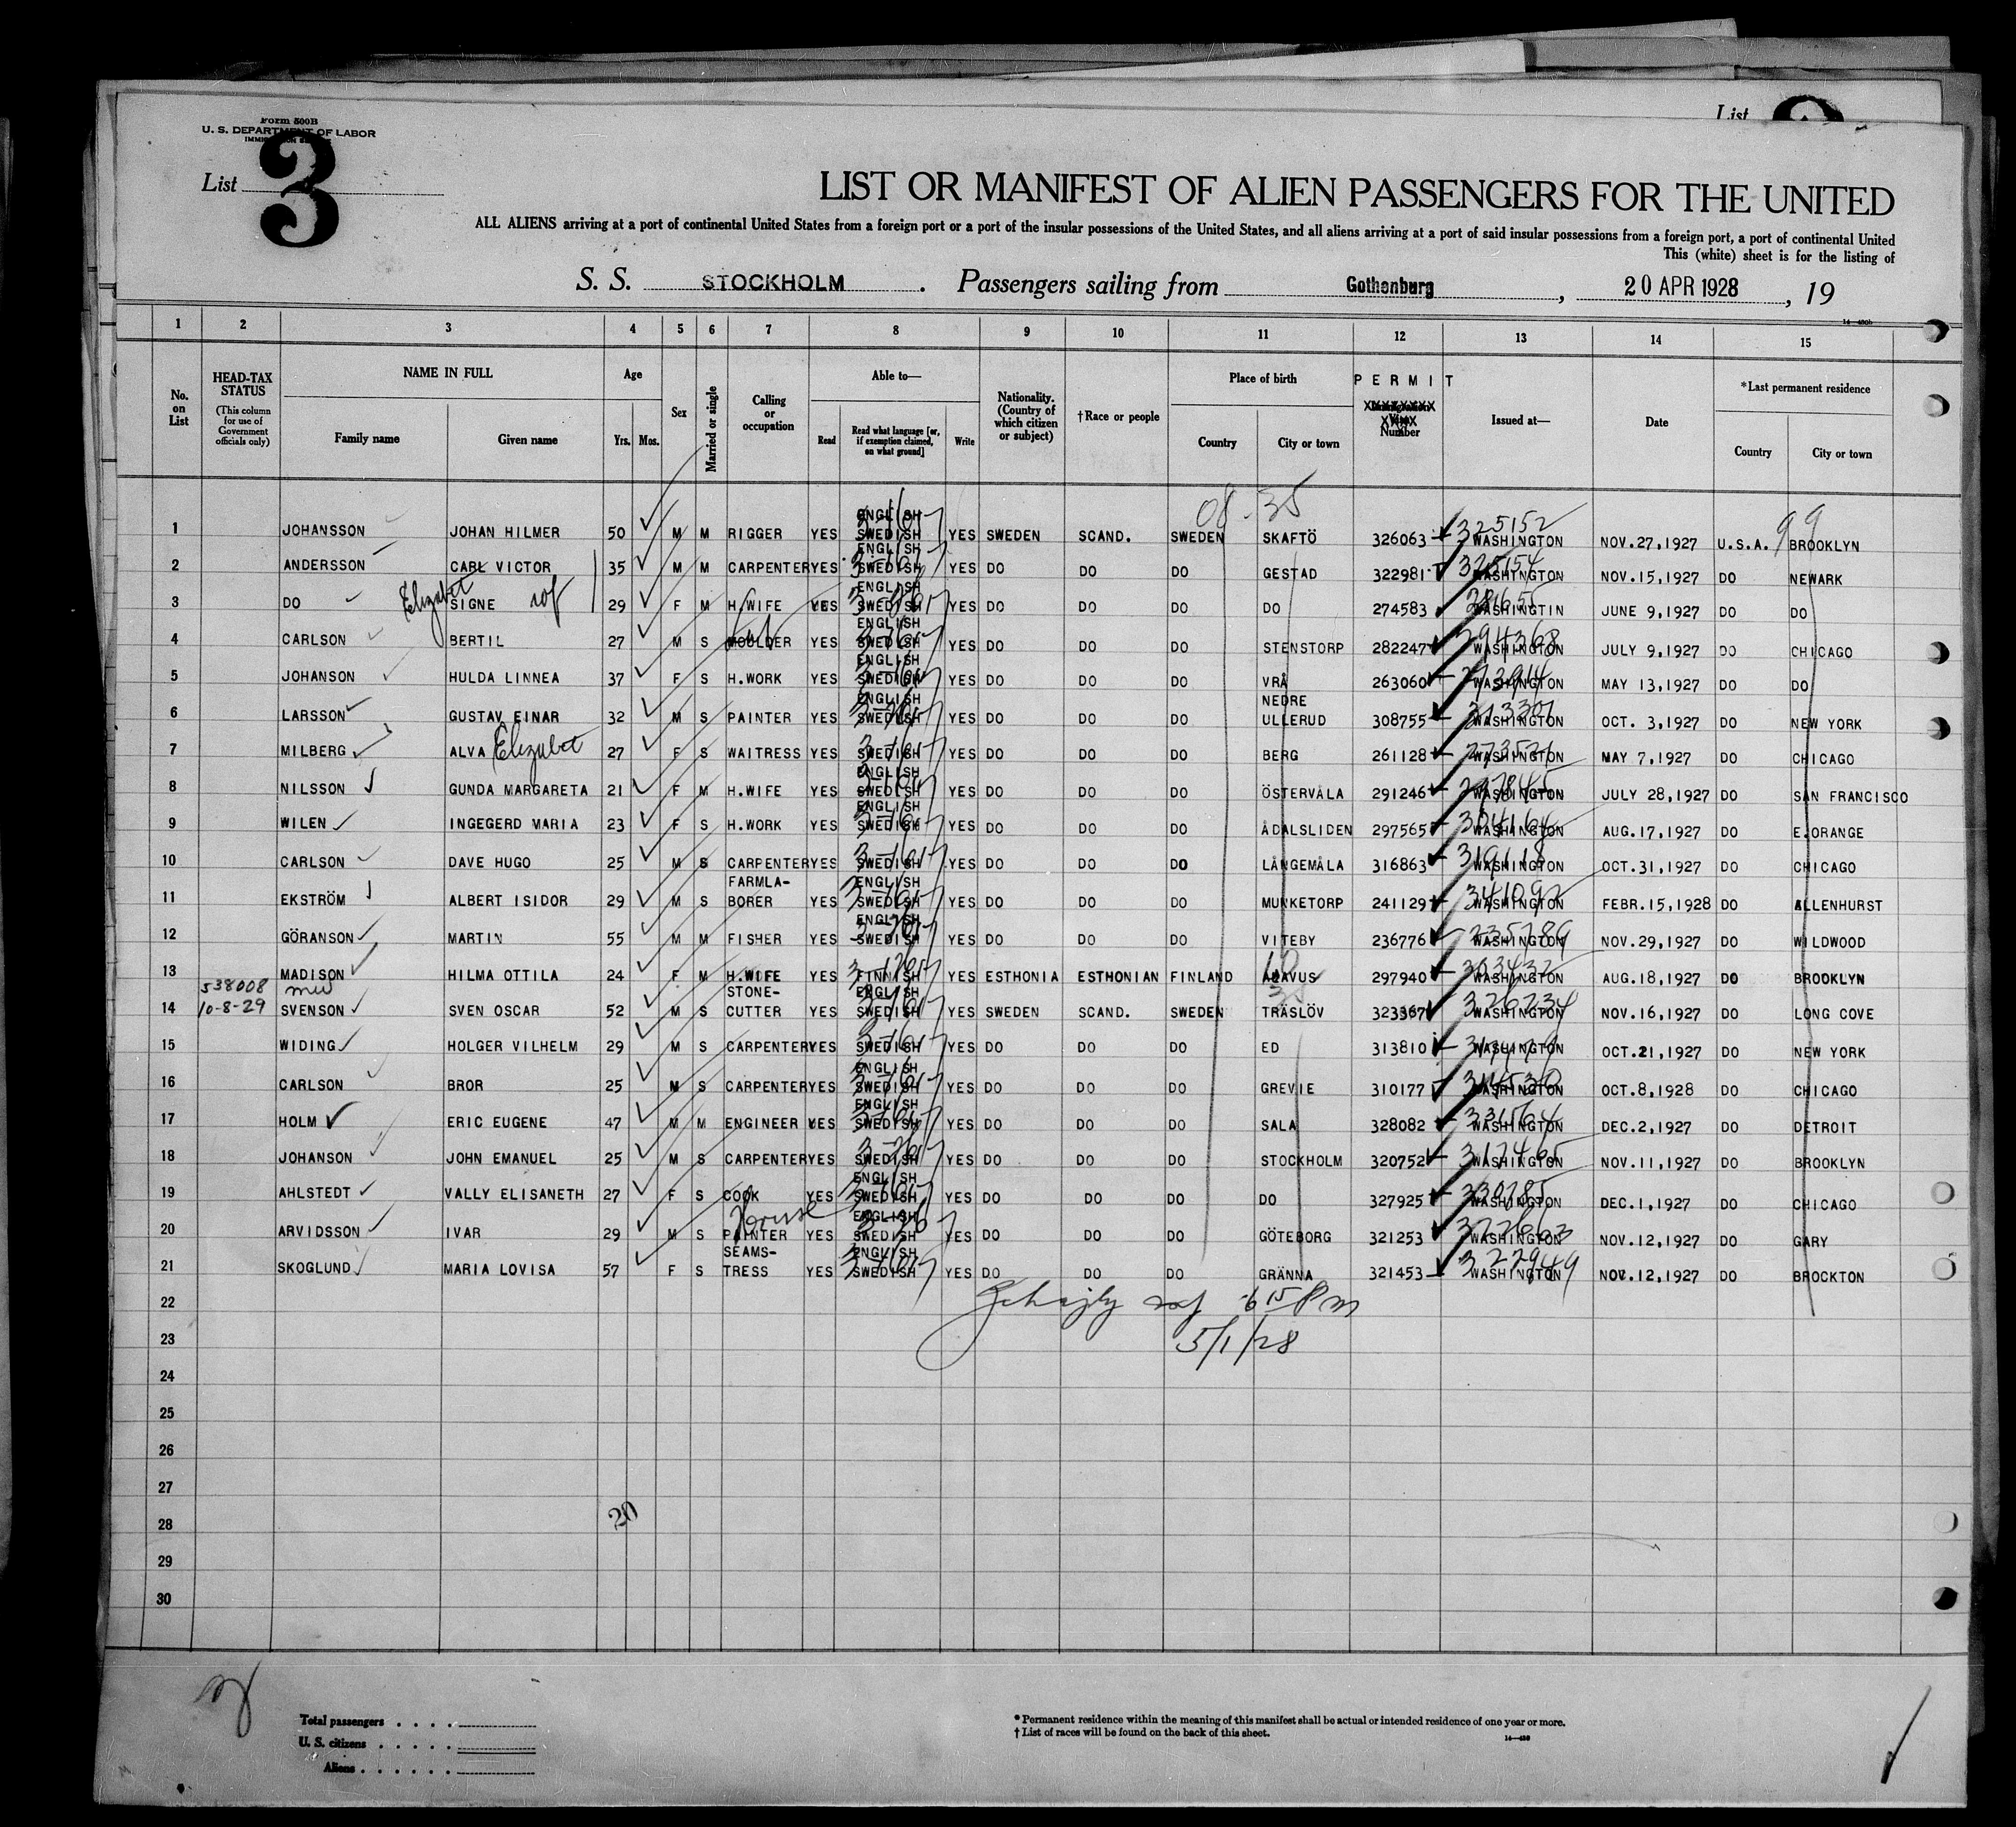 List
Form 500B
U. S. DEPARTMENT OF LABOR
List 3
LIST OR MANIFEST OF ALIEN PASSENGERS FOR THE UNITED
ALL ALIENS arriving at a port of continental United States from a foreign port or a port of the insular possessions of the United States, and all aliens arriving at a port of said insular possessions from a foreign port, a port of continental United
This (white) sheet is for the listing of
S. S. STOCKHOLM. Passengers sailing from Gothenburg, 20 APR 1928, 19
1 2 3 4 5 6 7 8 9 10 11 12 13 14 15
No. on List HEAD-TAX STATUS (This column for use of Government officials only) NAME IN FULL Family name Given name Age Yrs. Mos. Sex Married or single Calling or occupation Able to— Read Read what language [or, if exemption claimed, on what ground] Write Nationality. (Country of which citizen or subject) †Race or people Place of birth Country City or town PERMIT Number Issued at— Date *Last permanent residence Country City or town
08-35
99
1 JOHANSSON JOHAN HILMER 50 M M RIGGER YES ENGLISH SWEDISH YES SWEDEN SCAND. SWEDEN SKAFTÖ 326063 325152 WASHINGTON NOV.27,1927 U.S.A. BROOKLYN
2 ANDERSSON CARL VICTOR 35 M M CARPENTER YES ENGLISH SWEDISH YES DO DO DO GESTAD 322981 WASHINGTON NOV.15,1927 DO NEWARK
3 DO Elizabet SIGNE 29 F M H.WIFE YES ENGLISH SWEDISH YES DO DO DO DO 274583 WASHINGTIN JUNE 9,1927 DO DO
4 CARLSON BERTIL 27 M S MOULDER YES ENGLISH SWEDISH YES DO DO DO STENSTORP 282247 294368 WASHINGTON JULY 9,1927 DO CHICAGO
5 JOHANSON HULDA LINNEA 37 F S H.WORK YES ENGLISH SWEDISH YES DO DO DO VRÅ 263060 WASHINGTON MAY 13,1927 DO DO
6 LARSSON GUSTAV EINAR 32 M S PAINTER YES ENGLISH SWEDISH YES DO DO DO NEDRE ULLERUD 308755 WASHINGTON OCT. 3,1927 DO NEW YORK
7 MILBERG ALVA Elizabet 27 F S WAITRESS YES SWEDISH YES DO DO DO BERG 261128 WASHINGTON MAY 7,1927 DO CHICAGO
8 NILSSON GUNDA MARGARETA 21 F M H.WIFE YES ENGLISH SWEDISH YES DO DO DO ÖSTERVÅLA 291246 WASHINGTON JULY 28,1927 DO SAN FRANCISCO
9 WILEN INGEGERD MARIA 23 F S H.WORK YES ENGLISH SWEDISH YES DO DO DO ÅDALSLIDEN 297565 304164 WASHINGTON AUG.17,1927 DO E.ORANGE
10 CARLSON DAVE HUGO 25 M S CARPENTER YES SWEDISH YES DO DO DO LÅNGEMÅLA 316863 WASHINGTON OCT.31,1927 DO CHICAGO
11 EKSTRÖM ALBERT ISIDOR 29 M S FARMLA- BORER YES ENGLISH SWEDISH YES DO DO DO MUNKETORP 241129 341092 WASHINGTON FEBR.15,1928 DO ALLENHURST
12 GÖRANSON MARTIN 55 M M FISHER YES ENGLISH SWEDISH YES DO DO DO VITEBY 236776 WASHINGTON NOV.29,1927 DO WILDWOOD
13 MADISON HILMA OTTILA 24 F M H.WIFE YES FINNISH YES ESTHONIA ESTHONIAN FINLAND ALAVUS 297940 303432 WASHINGTON AUG.18,1927 DO BROOKLYN
538008
10-8-29
14 SVENSON SVEN OSCAR 52 M S STONE- CUTTER YES ENGLISH SWEDISH YES SWEDEN SCAND. SWEDEN TRÄSLÖV 323367 326234 WASHINGTON NOV.16,1927 DO LONG COVE
15 WIDING HOLGER VILHELM 29 M S CARPENTER YES SWEDISH YES DO DO DO ED 313810 WASHINGTON OCT.21,1927 DO NEW YORK
16 CARLSON BROR 25 M S CARPENTER YES ENGLISH SWEDISH YES DO DO DO GREVIE 310177 314530 WASHINGTON OCT.8,1928 DO CHICAGO
17 HOLM ERIC EUGENE 47 M M ENGINEER YES ENGLISH SWEDISH YES DO DO DO SALA 328082 331564 WASHINGTON DEC.2,1927 DO DETROIT
18 JOHANSON JOHN EMANUEL 25 M S CARPENTER YES SWEDISH YES DO DO DO STOCKHOLM 320752 317465 WASHINGTON NOV.11,1927 DO BROOKLYN
19 AHLSTEDT VALLY ELISANETH 27 F S COOK YES ENGLISH SWEDISH YES DO DO DO DO 327925 330785 WASHINGTON DEC.1,1927 DO CHICAGO
20 ARVIDSSON IVAR 29 M S PAINTER YES ENGLISH SWEDISH YES DO DO DO GÖTEBORG 321253 WASHINGTON NOV.12,1927 DO GARY
21 SKOGLUND MARIA LOVISA 57 F S SEAMS- TRESS YES ENGLISH SWEDISH YES DO DO DO GRÄNNA 321453 322949 WASHINGTON NOV.12,1927 DO BROCKTON
22 6 15 Pm
23 5/1/28
24
25
26
27
28 20
29
30
Total passengers . . . .
U. S. citizens . . . . .
Aliens . . . . . .
* Permanent residence within the meaning of this manifest shall be actual or intended residence of one year or more.
† List of races will be found on the back of this sheet.